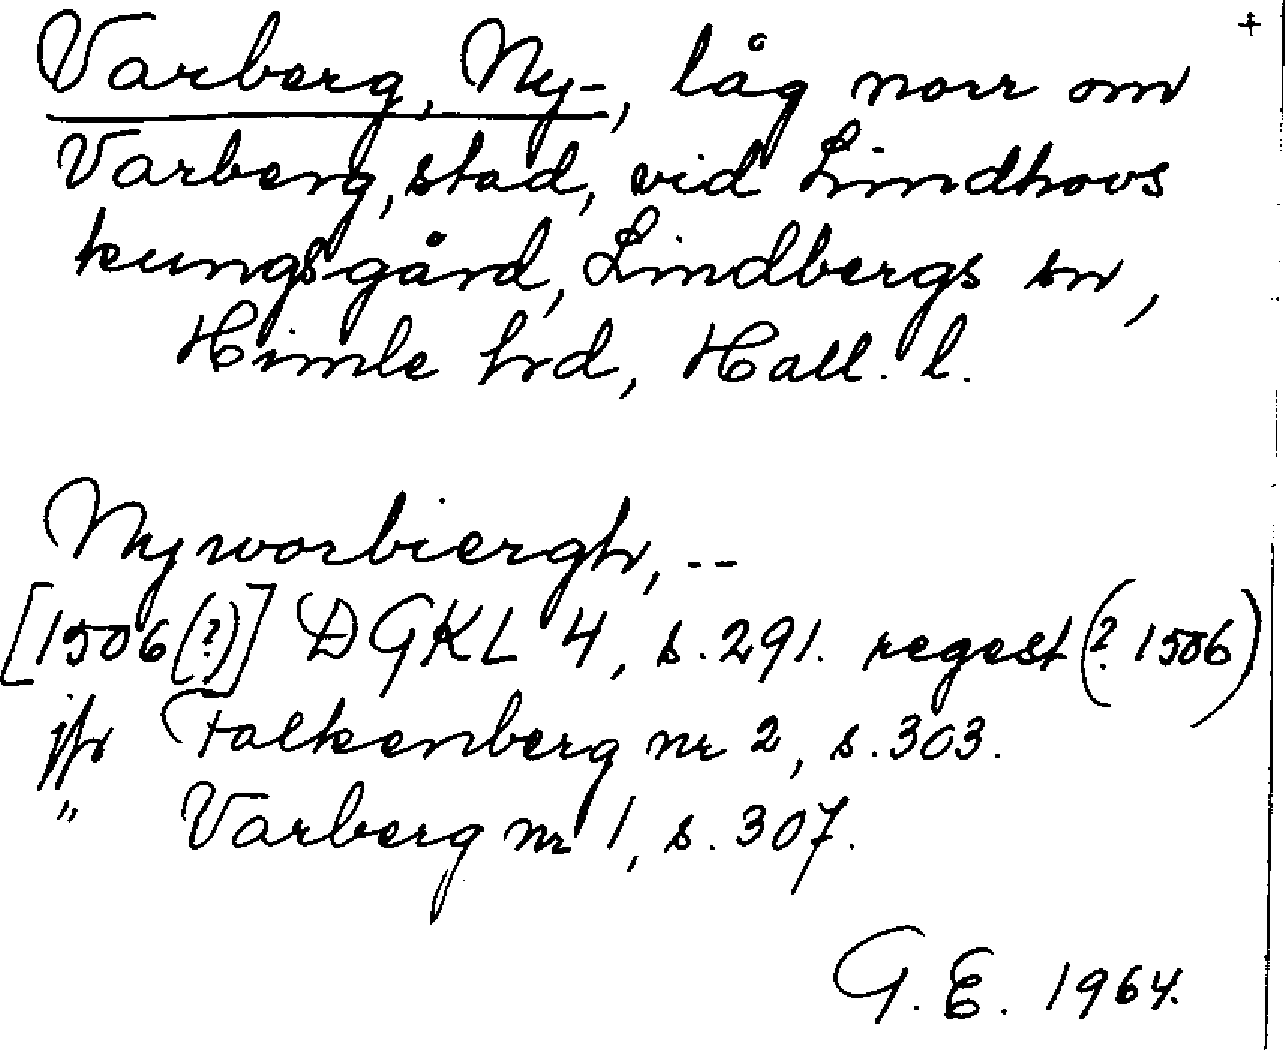 +
Varberg, Ny-, låg norr om
Varberg, stad, vid Lindhovs
kungsgård, Lindbergs sn,
Himle hrd, Hall. l.
Nyworbiergh, --
[1506(?)] DGKL 4, s. 291. regest (? 1506)
jfr Falkenberg nr 2, s. 303.
" Varberg nr 1, s. 307.
G. E. 1964.